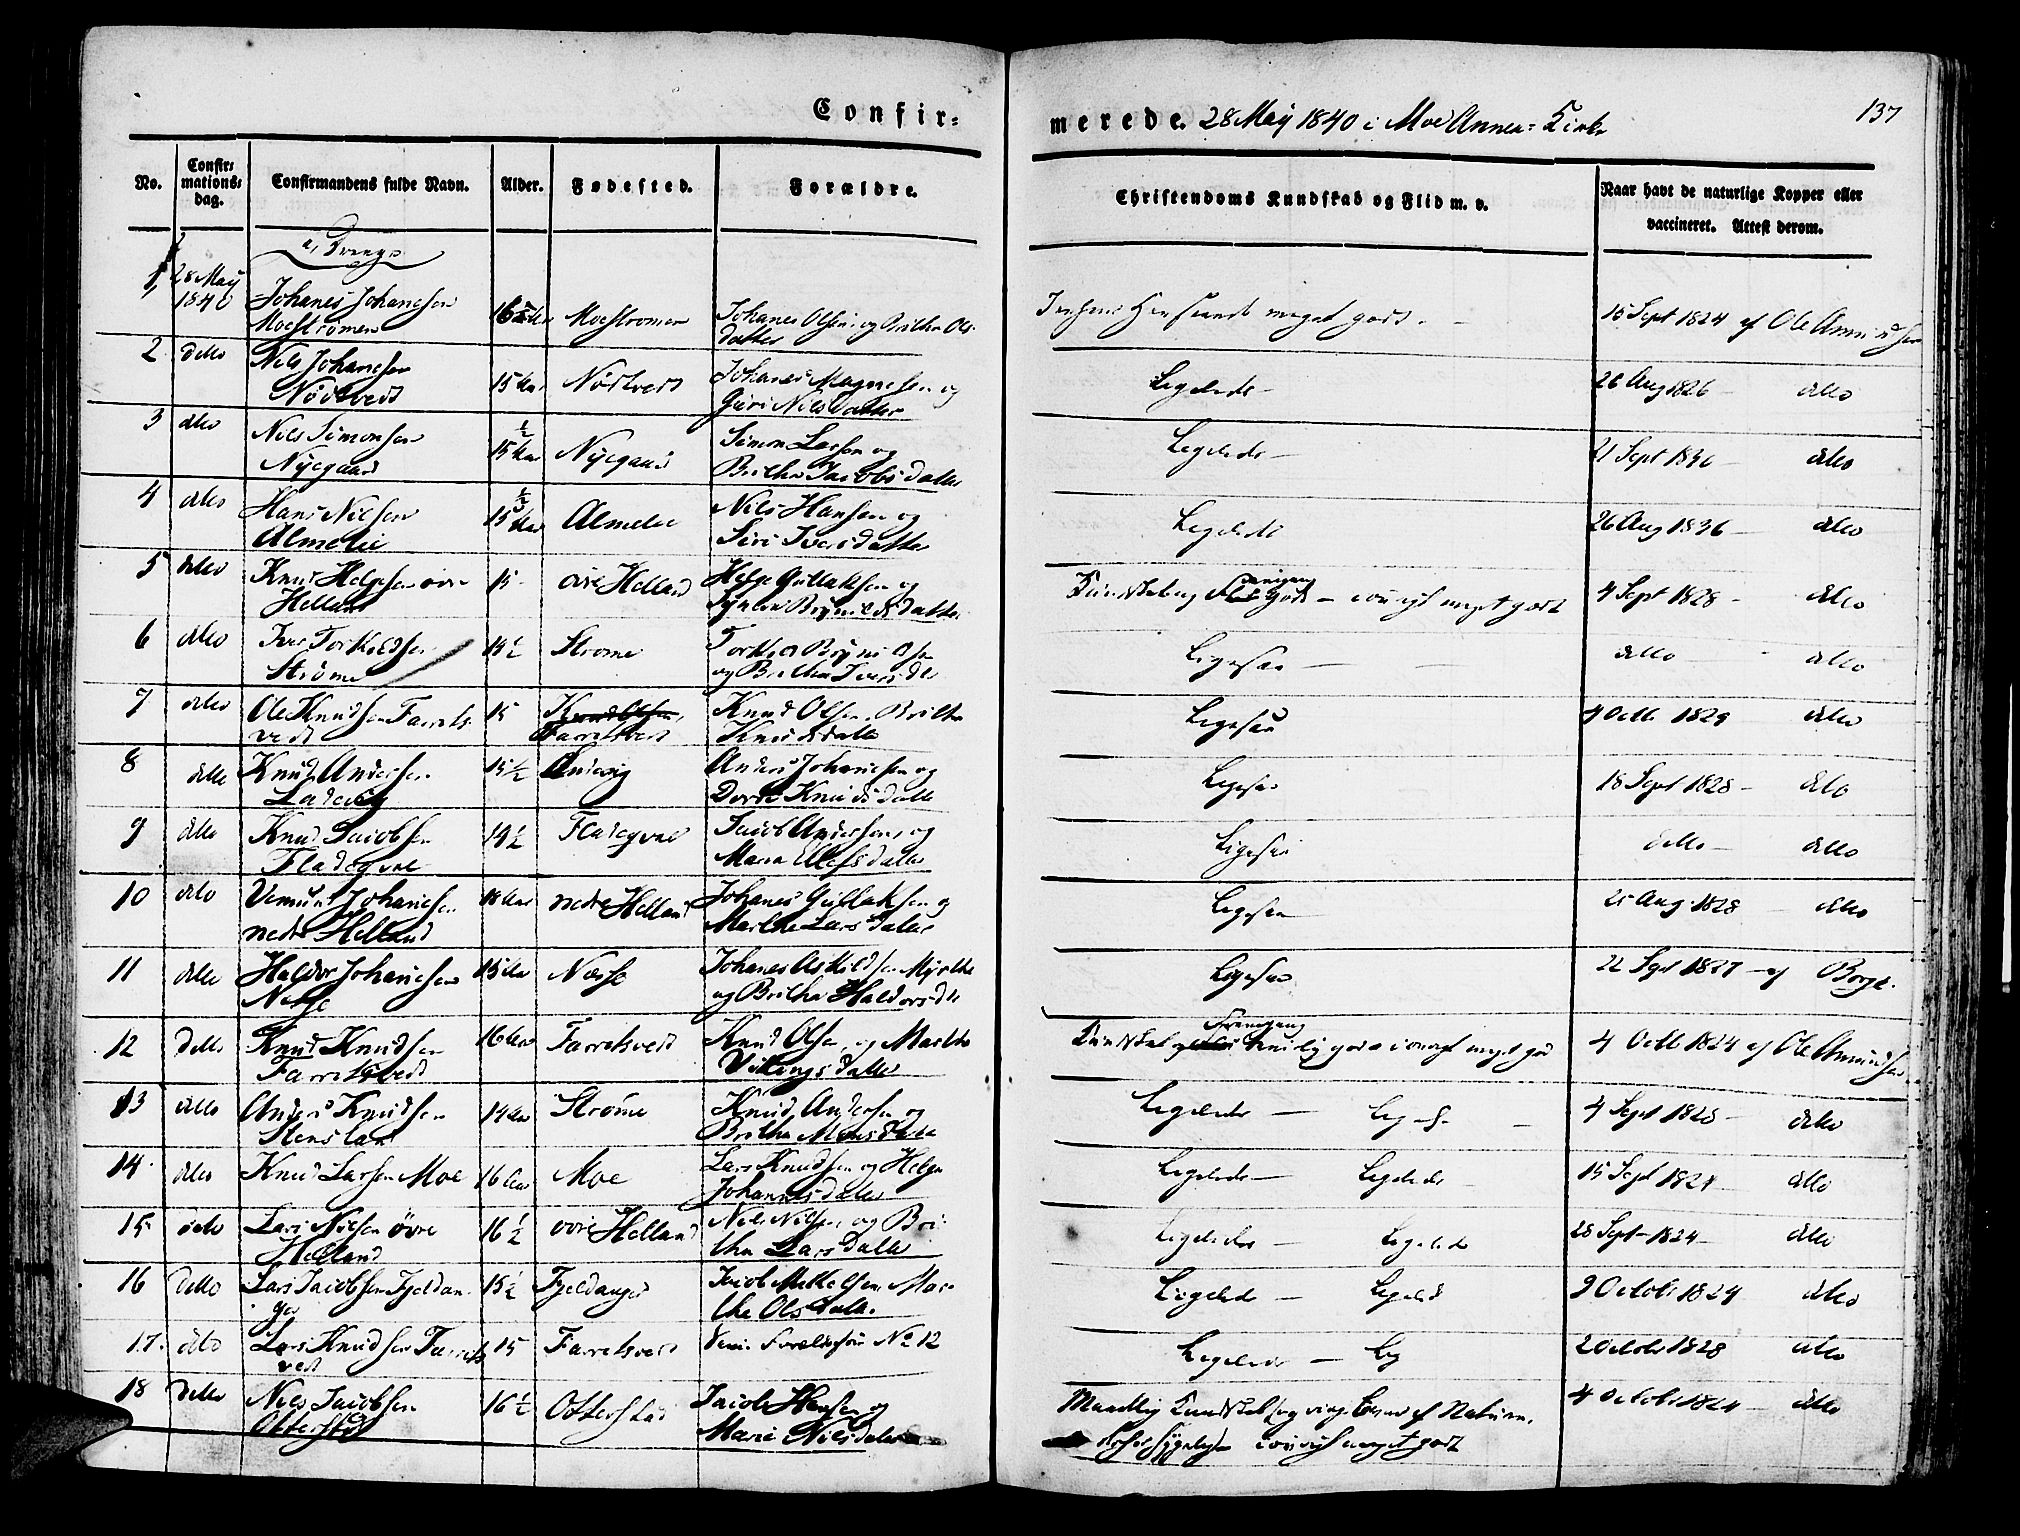 Confir=
merede. 28 May 1840 i Moe Annex= Kirke
137
No.
Confir= mations= dag.
Confirmandens fulde Navn.
Alder.
Fødested.
Forældre.
Christendoms Kundskab og Flid m. v.
Naar havt de naturlige Kopper eller vaccineret. Attest derom.
a, Drenge
1, 28 May 1840 Johanes Johanesen Moestrømen Moestromen Johanes Olsen og Britha Ols datter meget godt. 15 Sept 1824 af Ole Amundsen
2 detto Nils Johanesen Nødtvedt 15 Aar Nødtvedt Johanes Magnesen og Guri Nilsdatter Ligeledes 26 Aug 1826 ditto
3 ditto Nils Simonsen Nyegaard 15 1/2 Aar Nyegaard Simon Larsen og Britha Jacobsdatter Ligeledes 21 Sept 1836 ditto
4 ditto Hans Nilsen Almelie 15 1/2 Aar Almelie Nils Hansen og Siri Iversdatter Ligeledes 26 Aug 1836 ditto
5 ditto Knud Helgesen øvre Helland 15 øvre Helland Helge Gullaksen og Brynildsdatter godt iøvrigt meget godt 4 Sept 1828 ditto
6 ditto Iver Torkildsen Strøme 14 1/2 Strome Torkild Brynildsen og Britha Iversdtr Ligesaa ditto ditto
7 ditto Ole Knudsen Farretsvedt 15 Knud Olsen, Farretsvedt Knud Olsen, Britha Knudsdatter Ligesaa 4 Octb 1829 ditto
8 ditto Knud Andersen Ladevig 15 1/2 Anders Johanesen og Dorte Knudsdatter Ligesaa 18 Sept 1828 ditto
9 ditto Knud Jacobsen Fladeqval 14 1/2 Fladeqval Jacob Andersen og Maria Ellefsdatter Ligesaa ditto ditto
10 ditto Vemund Johanesen nedre Helland 18 Aar nedre Helland Johanes Gullaksen og Marthe Larsdatter Ligesaa 25 Aug 1828 ditto
11 ditto Haldor Johanesen Nesse 15 Aar Nesse Johanes Askildsen Myrtha og Britha Haldorsdtr Ligesaa 22 Sept 1827 af Borge.
12 Detto Knud Knudsen Farretsvedt 16 Aar Farretsvedt Knud Olsen, og Martha Vikingsdatter Kundskab og Fremgang temelig god iøvrigt meget god 4 Octb 1824 af Ole Amundsen
13 ditto Anders Knudsen Stensland 14 Aar Strøme Knud Andersen og Britha Monsdatter Ligeledes 4 Sept 1828 ditto
14 ditto Knud Larsen Moe 16 Aar Moe Lars Knudsen og Helga Johannesdatter Ligeledes Ligeledes 15 Sept 1824 ditto
15 ditto Lars Nilsen øvre Helland 16 1/2 øvre Helland Nils Nilsen og Britha Larsdatter Ligeledes Ligeledes 28 Sept 1824 ditto
16 Detto Lars Jacobsen Fjeldanger 15 1/2 Fjeldanger Jacob Mikkelsen Marthe Olsdatter Ligeledes Ligeled 9 October 1824 ditto
17. ditto Lars Knudsen Farretsvedt 15 Farretsvedt No 12 Ligeledes Lig 2 October 1828 ditto
18 Detto Nils Jacobsen Otterstad 16 1/2 Otterstad Jacob Hansen og Marie Nilsdatter Maadelig Kundskab og ringe af Naturen, iøvrigt meget godt 4 October 1824 ditto